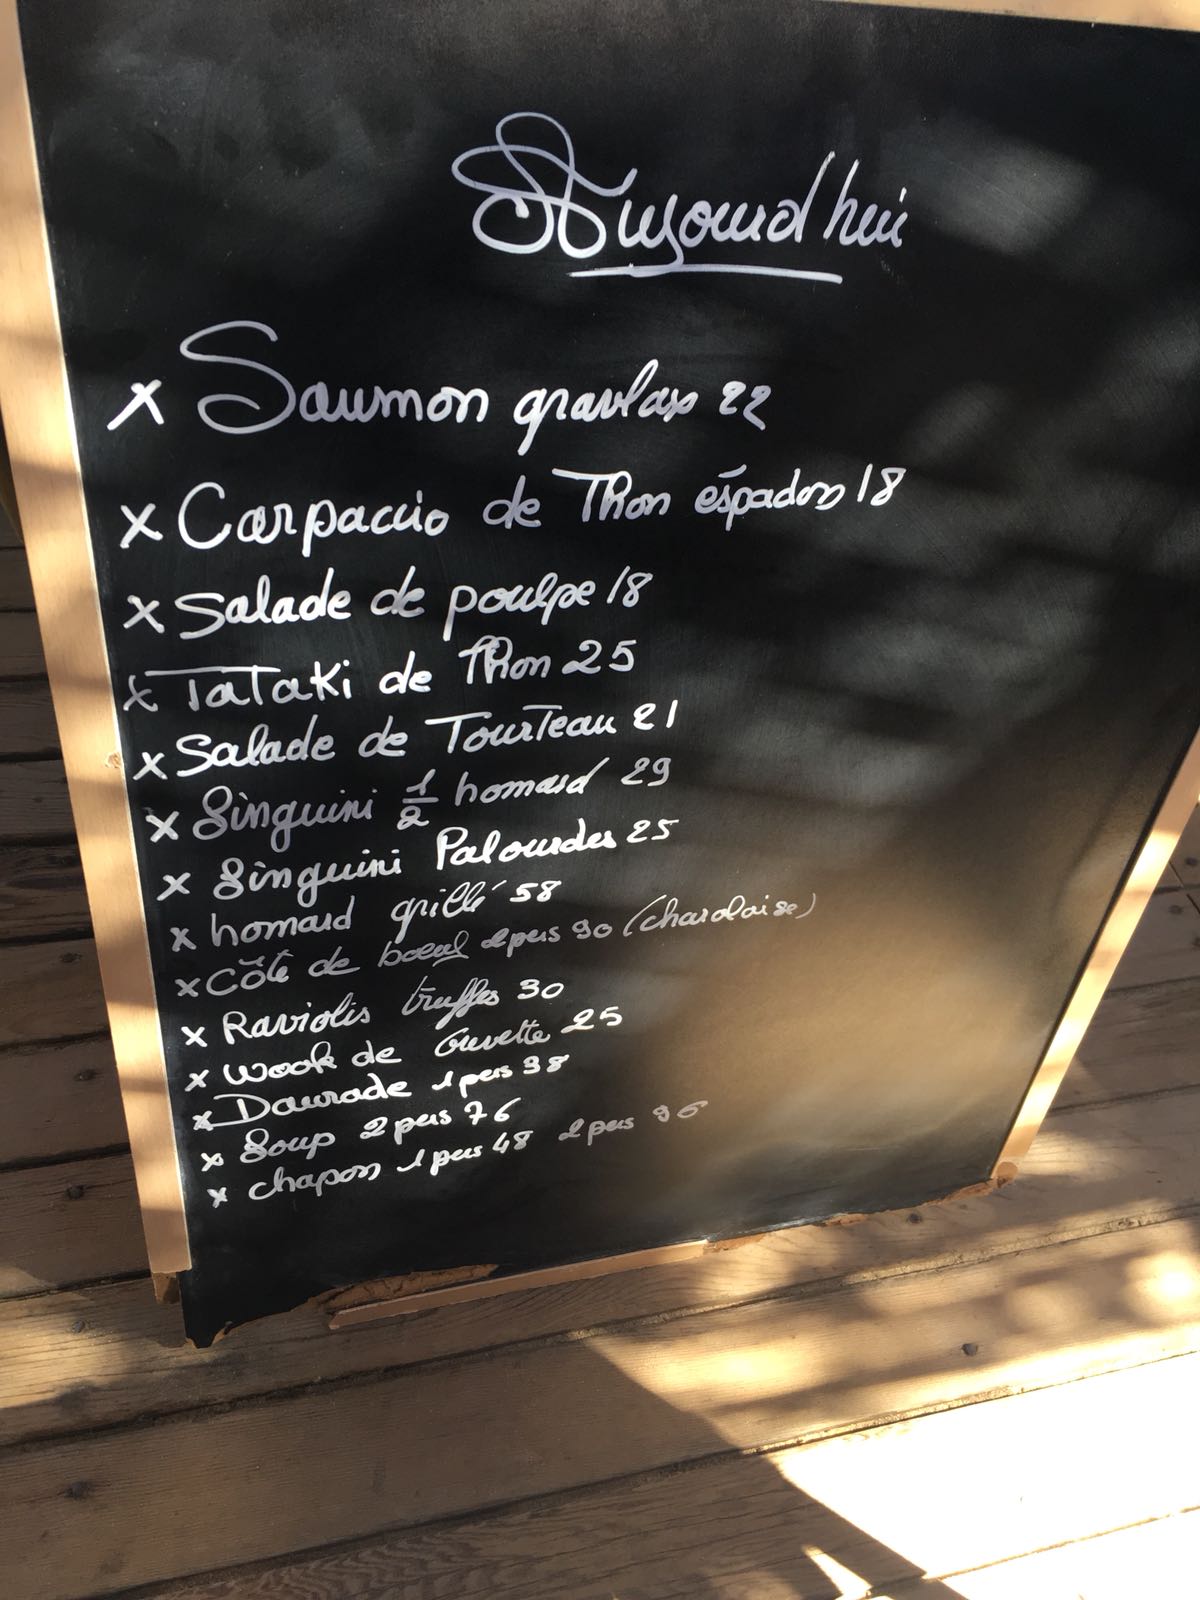 Aujourd'hui
x Saumon gravlax 22
x Carpaccio de Thon éspadon 18
x Salade de poulpe 18
x TaTaKi de Thon 25
x Salade de TourTeau 21
x Linguini 1/2 homard 29
x Linguini Palourdes 25
x homard grillé 58
x Côte de boeuf 2 pers 90 (charolaise)
x Raviolis truffes 30
x wook de Crevette 25
x Daurade 1 pers 38
x Loup 2 pers 76
x chapon 1 pers 48 2 pers 96